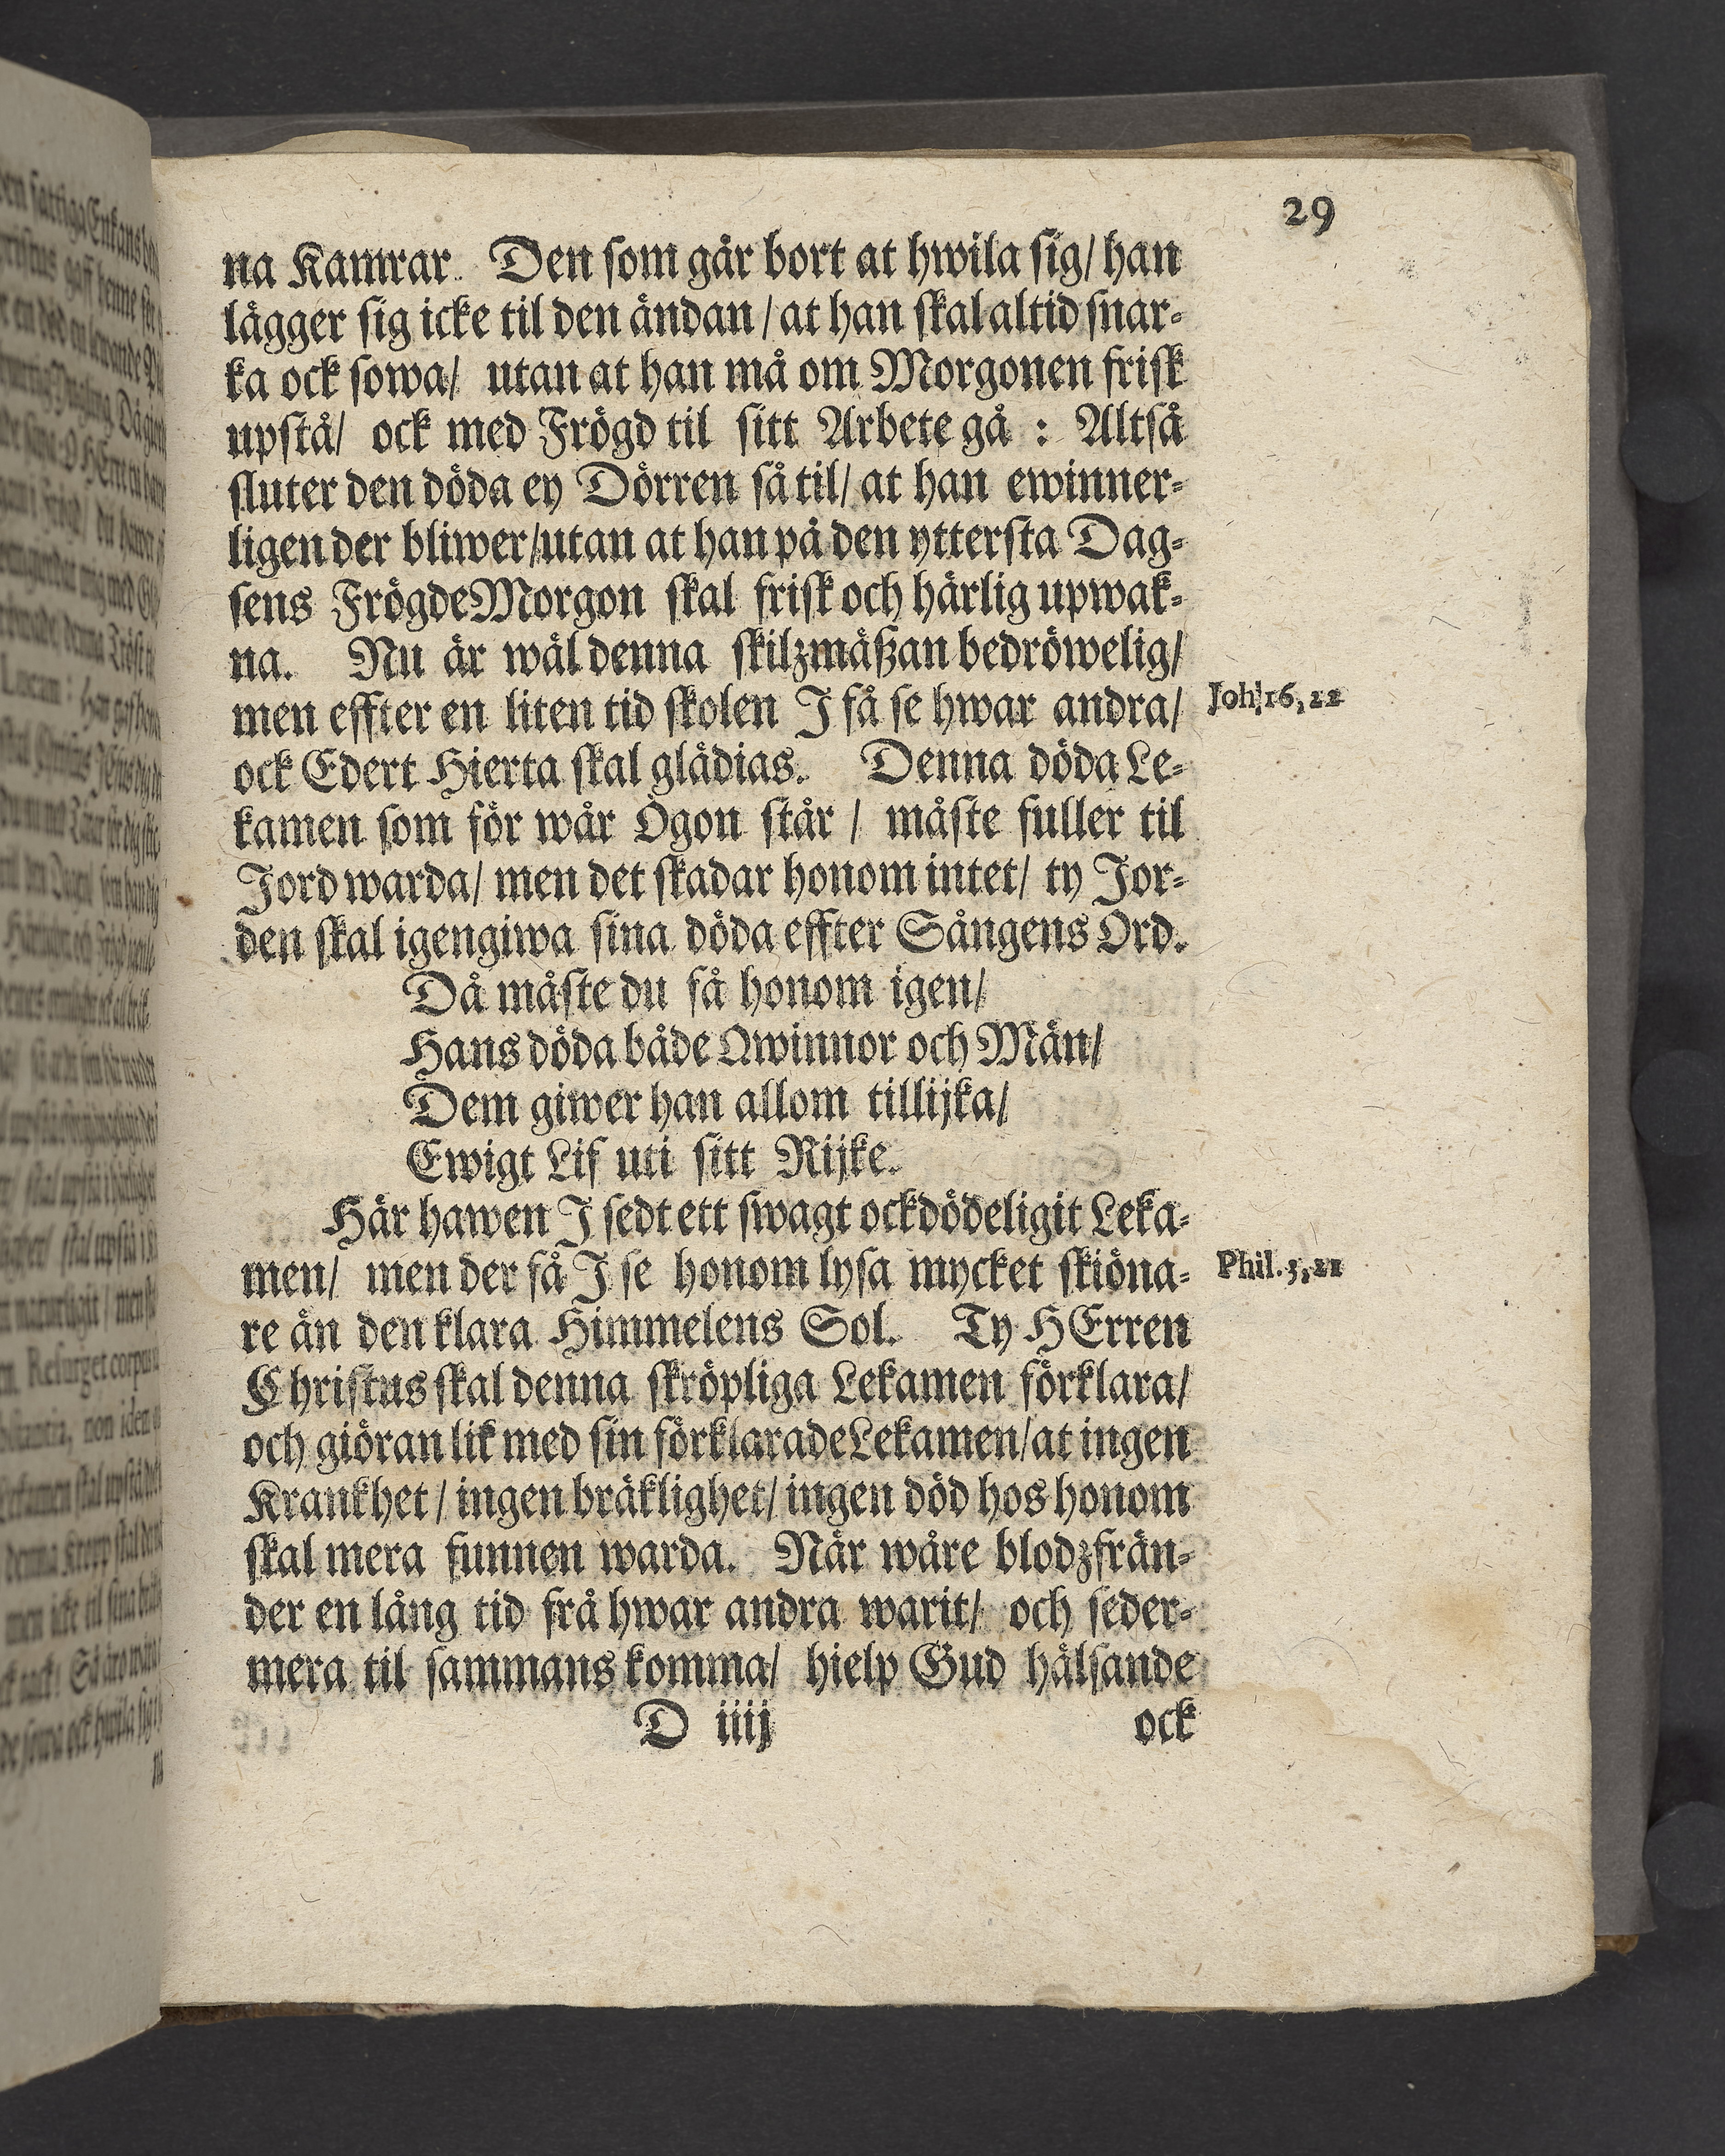 29
na Kamrar. Den som går bort at hwila sig/ han
lägger sig icke til den ändan / at han skal altid snar-
ka ock sowa/ utan at han må om Morgonen frisk
upstå/ ock med Frögd til sitt Arbete gå : Altså
sluter den döda ey Dörren så til/ at han ewinner-
ligen der bliwer/utan at han på den yttersta Dag-
sens FrögdeMorgon skal frisk och härlig upwak-
na. Nu är wäl denna skilzmäßan bedröwelig/
men effter en liten tid skolen J få se hwar andra/
Joh.16, 22
ock Edert Hierta skal glädias. Denna döda Le-
kamen som för wår Ögon står / måste fuller til
Jord warda/ men det skadar honom intet/ ty Jor-
den skal igengiwa sina döda effter Sångens Ord.
Då måste du få honom igen/
Hans döda både Qwinnor och Män/
Dem giwer han allom tillijka/
Ewigt Lif uti sitt Rijke.
Här hawen J sedt ett swagt ock dödeligit Leka-
men/ men der få J se honom lysa mycket skiöna-
Phil. 3, 21
re än den klara Himmelens Sol. Ty HErren
Christus skal denna skröpliga Lekamen förklara/
och giöran lik med sin förklarade Lekamen/at ingen
Krankhet / ingen bräklighet/ ingen död hos honom
skal mera funnen warda. När wåre blodzfrän-
der en lång tid frå hwar andra warit/ och seder-
mera til sammans komma/ hielp Gud hälsande
D iiij
ock